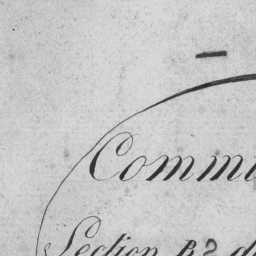 Commu
Section B2 d